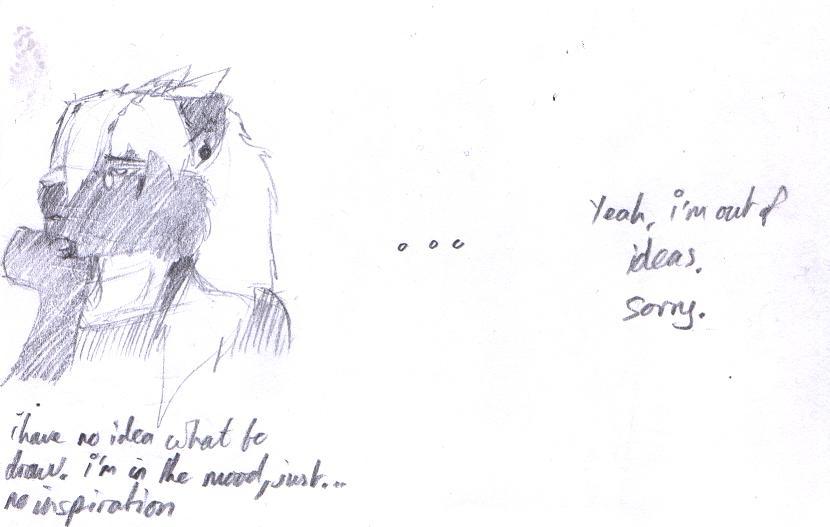 i have no idea what to
draw. i'm in the mood, just...
no inspiration
...
Yeah, i'm out of
ideas.
Sorry.